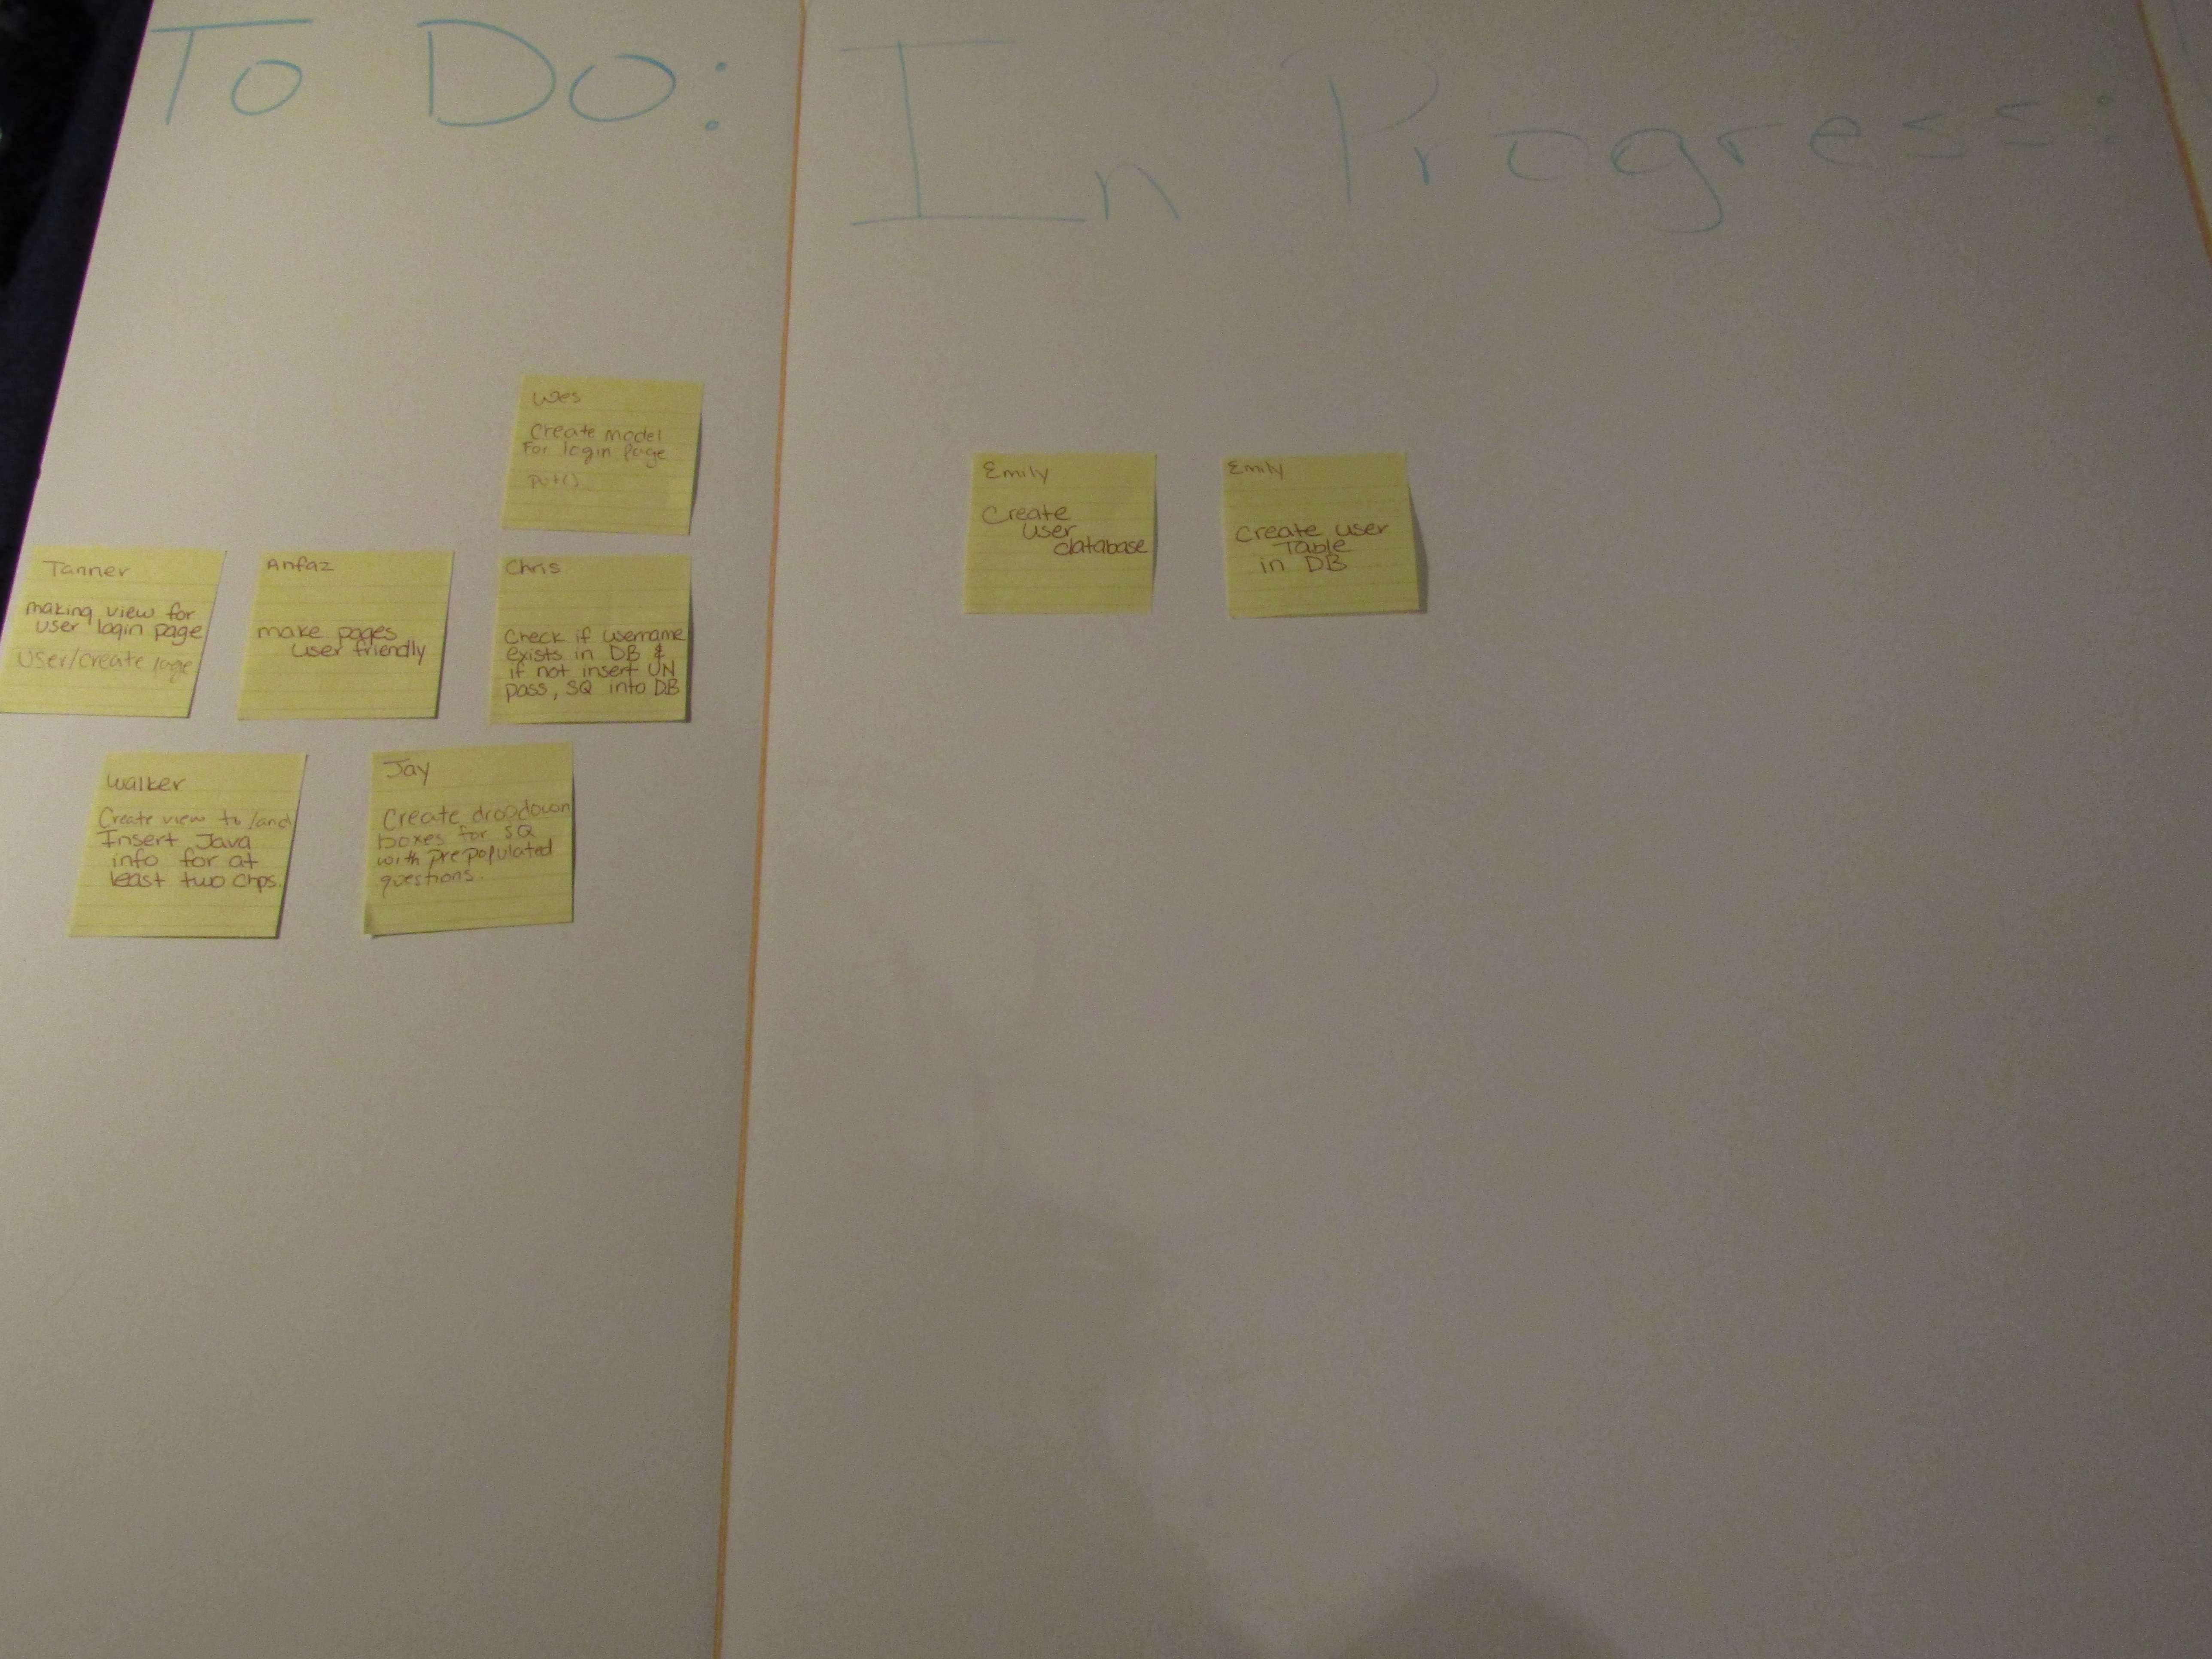 To Do:
In Progress:
Wes
Create model
For login page
put()
Tanner
making view for
user login page
User/Create page
Anfaz
make pages
user friendly
Chris
Check if username
exists in DB &
if not insert UN
pass, SQ into DB
Walker
Create view to/and
Insert Java
info for at
least two chps.
Jay
Create dropdown
boxes for SQ
with prepopulated
questions.
Emily
Create
user
database
Emily
Create user
Table
in DB